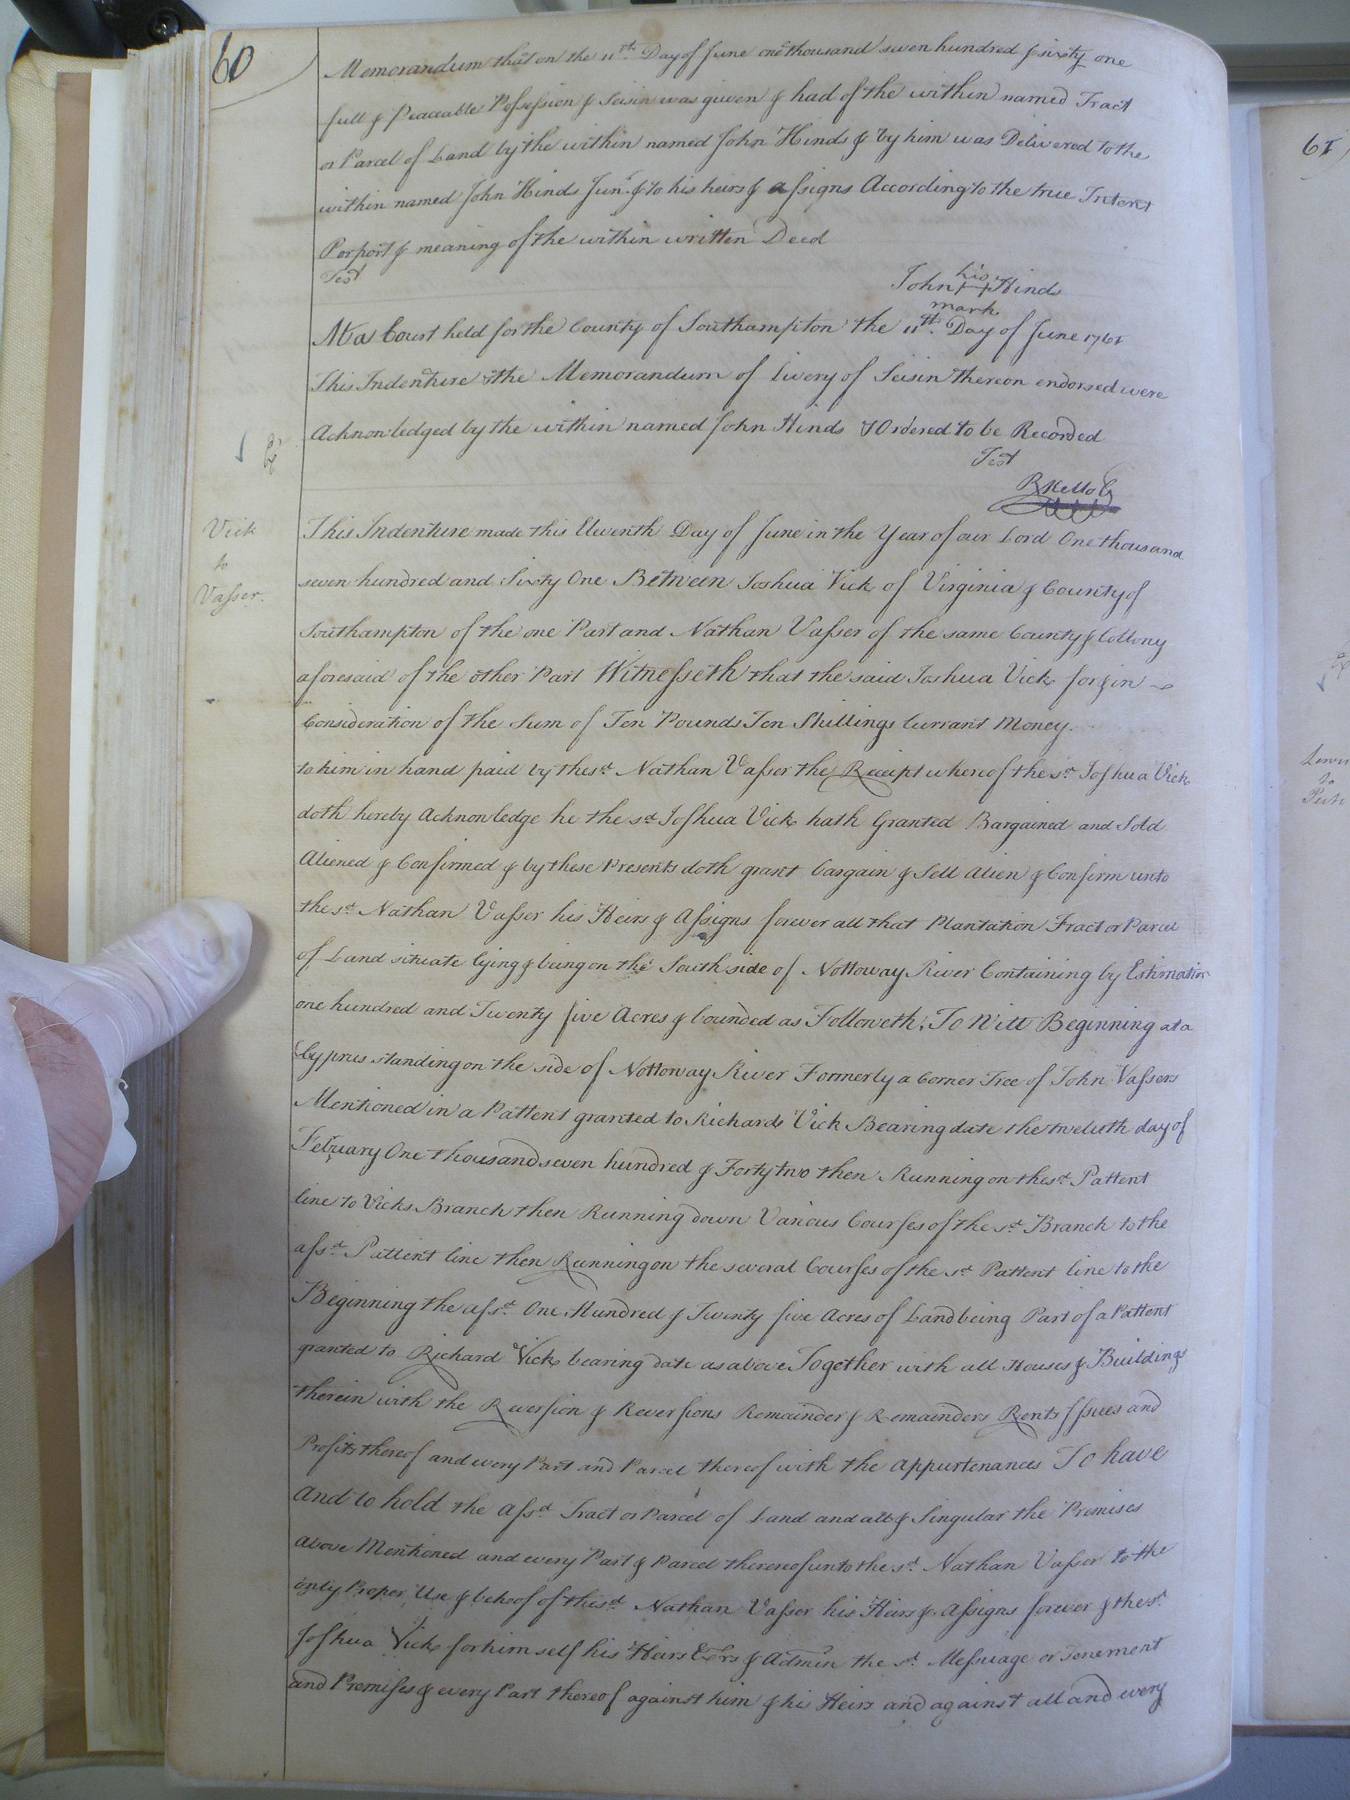 60
Memorandum that on the 11th Day of June one thousand seven hundred & sixty one
full & Peaceable Possession & Seisin was given & had of the within named Tract
or Parcel of Land by the within named John Hinds & by him was Delivered to the
within named John Hinds Junr. & to his heirs & assigns According to the true Intent
Porport & meaning of the within written Deed
Test
his
John H Hinds
mark
At a Court held for the County of Southampton the 11th. Day of June 1761
This Indenture & the Memorandum of Livery of Seisin thereon endorsed were
Acknowledged by the within named John Hinds & Ordered to be Recorded
Test
R Kello C
Vick
to
Vasser.
This Indenture made this Eleventh Day of June in the Year of our Lord One thousand
seven hundred and Sixty One Between Joshua Vick of Virginia & County of
Southampton of the one Part and Nathan Vasser of the same County & Collony
aforesaid of the other Part Witnesseth that the said Joshua Vick for & in
Consideration of the Sum of Ten Pounds Ten Shillings Currant Money
to him in hand paid by the sd. Nathan Vasser the Receipt whereof the sd. Joshua Vick
doth hereby Acknowledge he the sd. Joshua Vick hath Granted Bargained and Sold
Aliened & Confirmed & by these Presents doth grant bargain & Sell Alien & Confirm unto
the sd. Nathan Vasser his Heirs & Assigns forever all that Plantation Tract or Parcel
of Land situate lying & being on the South side of Nottoway River Containing by Estimation
one hundred and Twenty five Acres & bounded as Followeth; To Witt Beginning at a
Cyprus standing on the side of Nottoway River Formerly a Corner Tree of John Vassers
Mentioned in a Pattent granted to Richard Vick Bearing date the twelvth day of
Febuary One thousand seven hundred & Forty two then Running on the sd. Pattent
line to Vicks Branch then Running down Various Courses of the sd. Branch to the
afsd. Pattent line then Running on the several Courses of the sd. Pattent line to the
Beginning the afsd. One Hundred & Twenty five Acres of Land being Part of a Pattent
granted to Richard Vick bearing date as above Together with all Houses & Buildings
therein with the Reversion & Reversions Remainder & Remainders Rents Issues and
Profits thereof and every Part and Parcel thereof with the appurtenances To have
and to hold the afsd. Tract or Parcel of Land and all & Singular the Premises
above Mentioned and every Part & Parcel thereof unto the sd. Nathan Vasser to the
only Proper Use & behoof of the sd. Nathan Vasser his Heirs & Assigns forever & the sd.
Joshua Vick for himself his Heirs Exrs & Admin the sd. Messuage or Tenement
and Premises & every Part thereof against him & his Heirs and against all and every
61
to